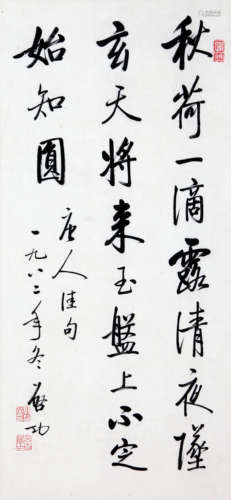 秋荷一滴露清夜墜
玄天将来玉盤上不定
始知圓
唐人佳句
一九八二年冬啟功